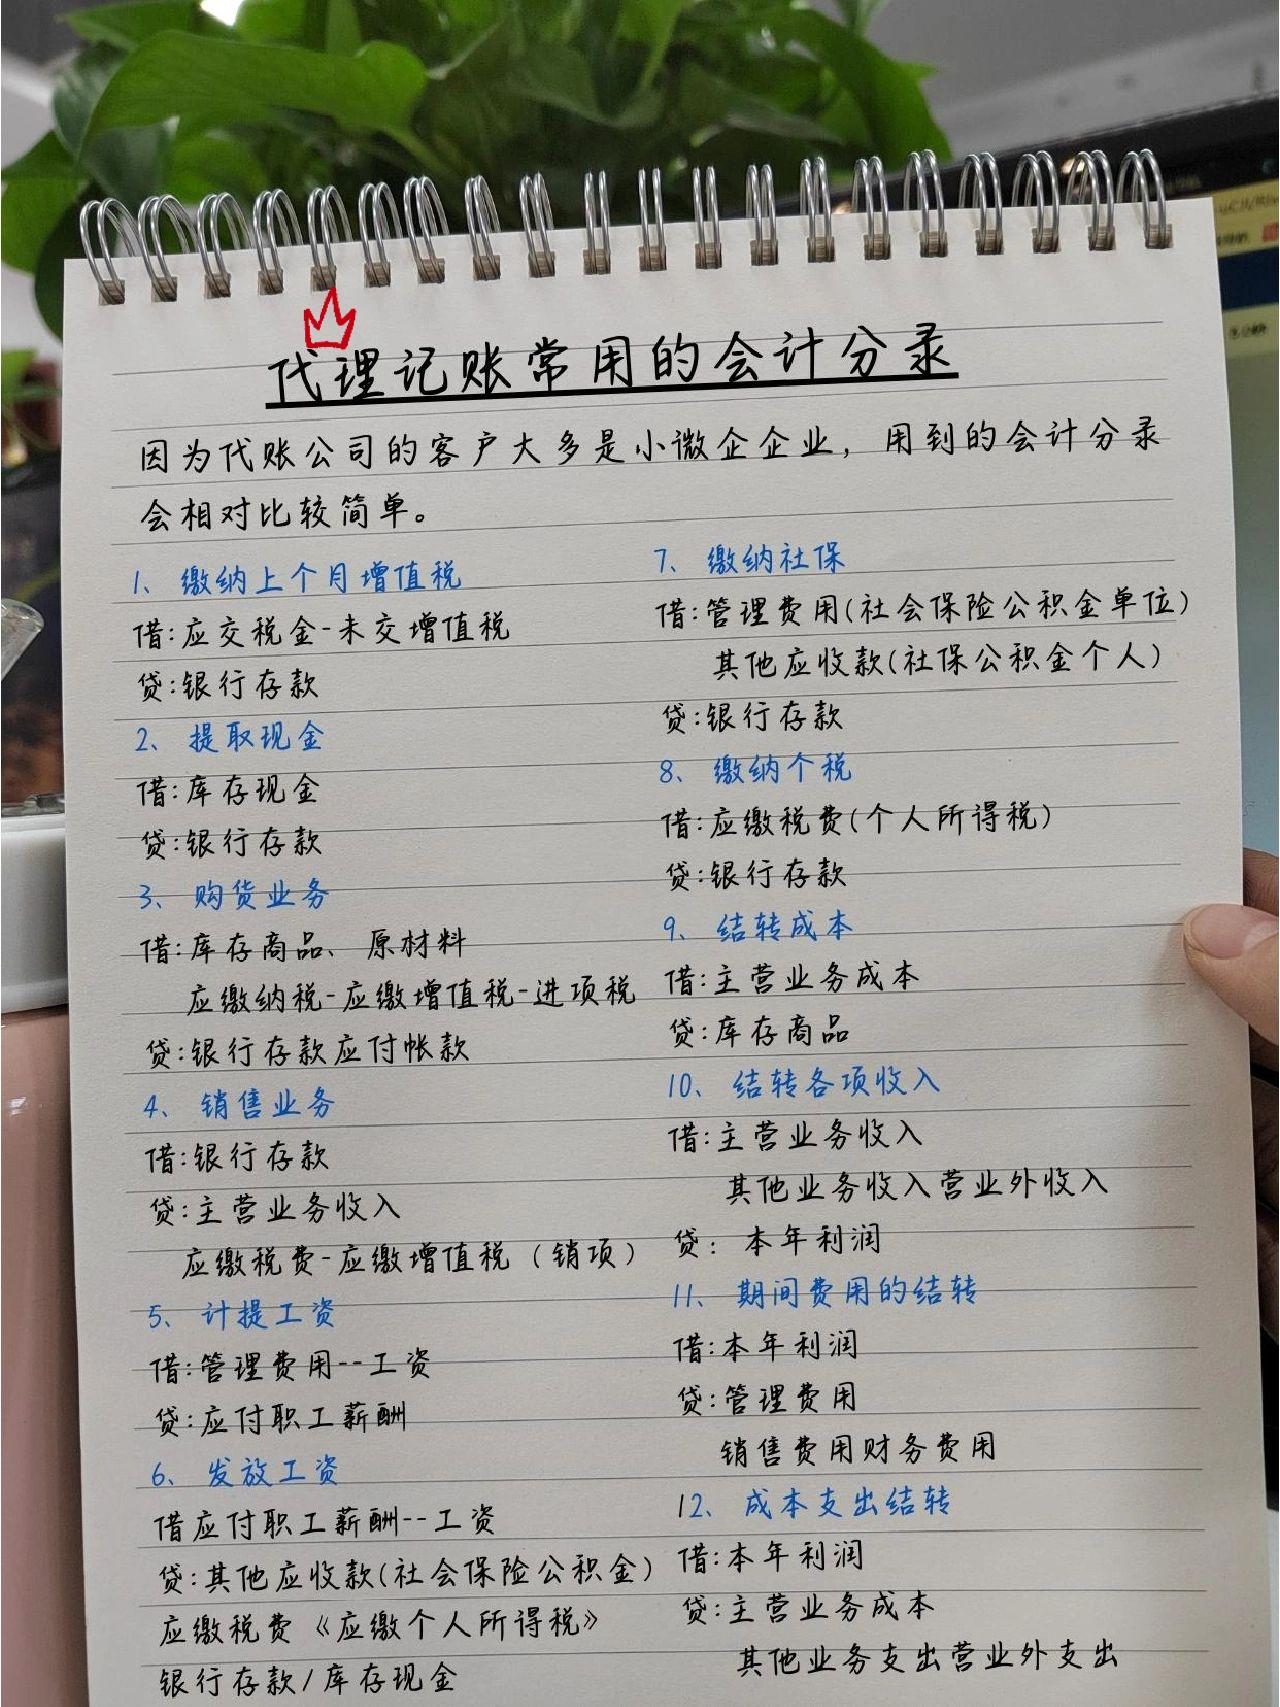 代理记账常用的会计分录
因为代账公司的客户大多是小微企企业，用到的会计分录
会相对比较简单。
1、缴纳上个月增值税
借:应交税金-未交增值税
贷:银行存款
2、提取现金
借:库存现金
贷:银行存款
3、购货业务
借:库存商品、原材料
应缴纳税-应缴增值税-进项税
贷:银行存款应付帐款
4、销售业务
借:银行存款
贷:主营业务收入
应缴税费-应缴增值税（销项）
5、计提工资
借:管理费用--工资
贷:应付职工薪酬
6、发放工资
借应付职工薪酬--工资
贷:其他应收款(社会保险公积金)
应缴税费《应缴个人所得税》
银行存款/库存现金
7、缴纳社保
借:管理费用(社会保险公积金单位)
其他应收款(社保公积金个人)
贷:银行存款
8、缴纳个税
借:应缴税费(个人所得税)
贷:银行存款
9、结转成本
借:主营业务成本
贷:库存商品
10、结转各项收入
借:主营业务收入
其他业务收入营业外收入
贷：本年利润
11、期间费用的结转
借:本年利润
贷:管理费用
销售费用财务费用
12、成本支出结转
借:本年利润
贷:主营业务成本
其他业务支出营业外支出